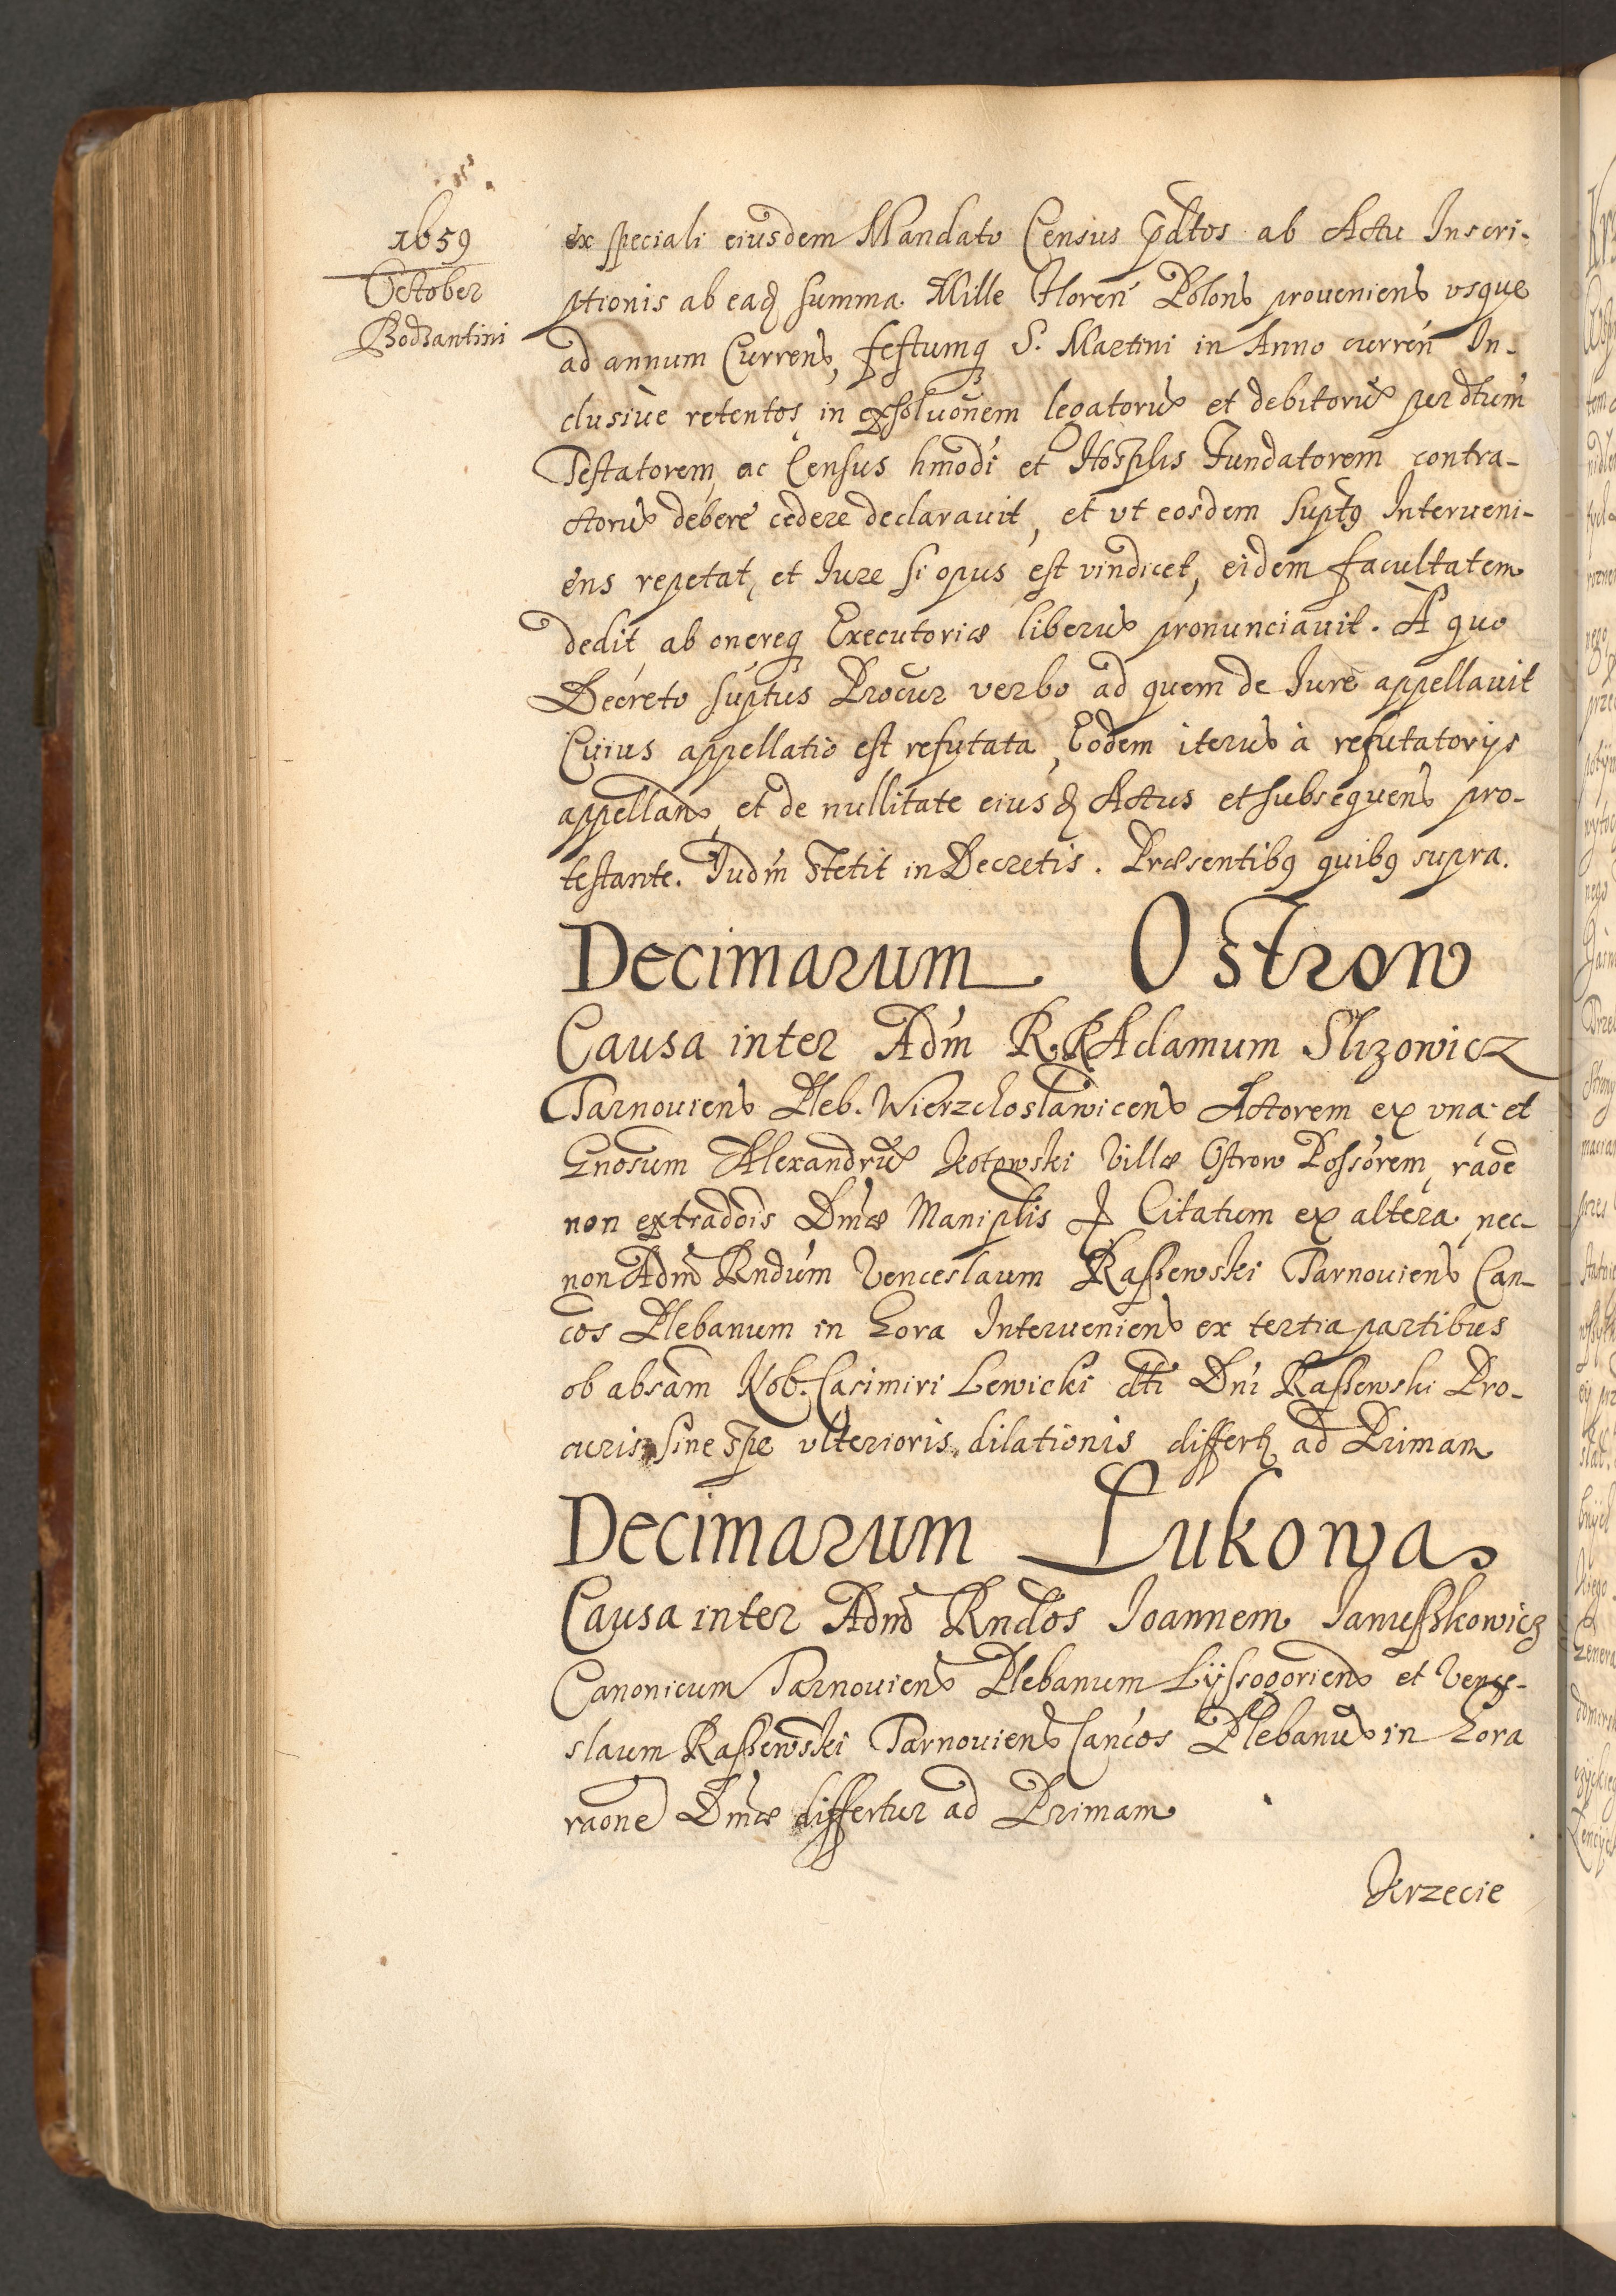 1659
October
Bodzantini
ex speciali eiusdem Mandato Census pdtos ab Actu Inscri-
ptionis ab eadq summa Mille Floren Polons proueniens vsque
ad annum Currens, festumq S. Martini in Anno curren In-
clusiue retentos, in exsoluonem legatorum et debitorum per dtum
Testatorem, ac Census hmodi et Hosplis Fundatorem contra-
ctorum debere cedere declarauit, et vt eosdem supts Interueni-
ens repetat, et Iure si opus est vindicet, eidem facultatem
dedit ab onereq Executoriæ liberum pronunciauit. A quo
Decreto suptus Procur verbo ad quem de Iure appellauit
Cuius appellatio est refutata, Eodem iterum à refutatorijs
appellans, et de nullitate eiusdq Actus et subsequens pro-
testante. Iudm stetit in Decretis. Præsentibus quibus supra.
Decimarum Ostrow
Causa inter Adm R. R Adamum Slizowicz
Tarnouiens Pleb. Wierzchoslawicens Actorem ex vna et
Gnosum Alexandrum Kotowski Villæ Ostrow Possorem, raoe
non extradois Dmæ Maniplis Citatum ex altera, nec-
non Adm Rndum Venceslaum Raszewski Tarnouiens Can-
cos Plebanum in Gora Interueniens ex tertia partibus
ob absam Nob. Casimiri Lewicki dti Dni Raszewski Pro-
curis sine spe vlterioris dilationis differtq ad Primam
Decimarum Łukowa
Causa inter Adm Rndos Joannem Januszkowicz
Canonicum Tarnouiens Plebanum Lyssogoriens et Vence-
slaum Raszewski Tarnouiens Cancos Plebanum in Gora
raone Dmæ differtur ad Primam
Krzecie